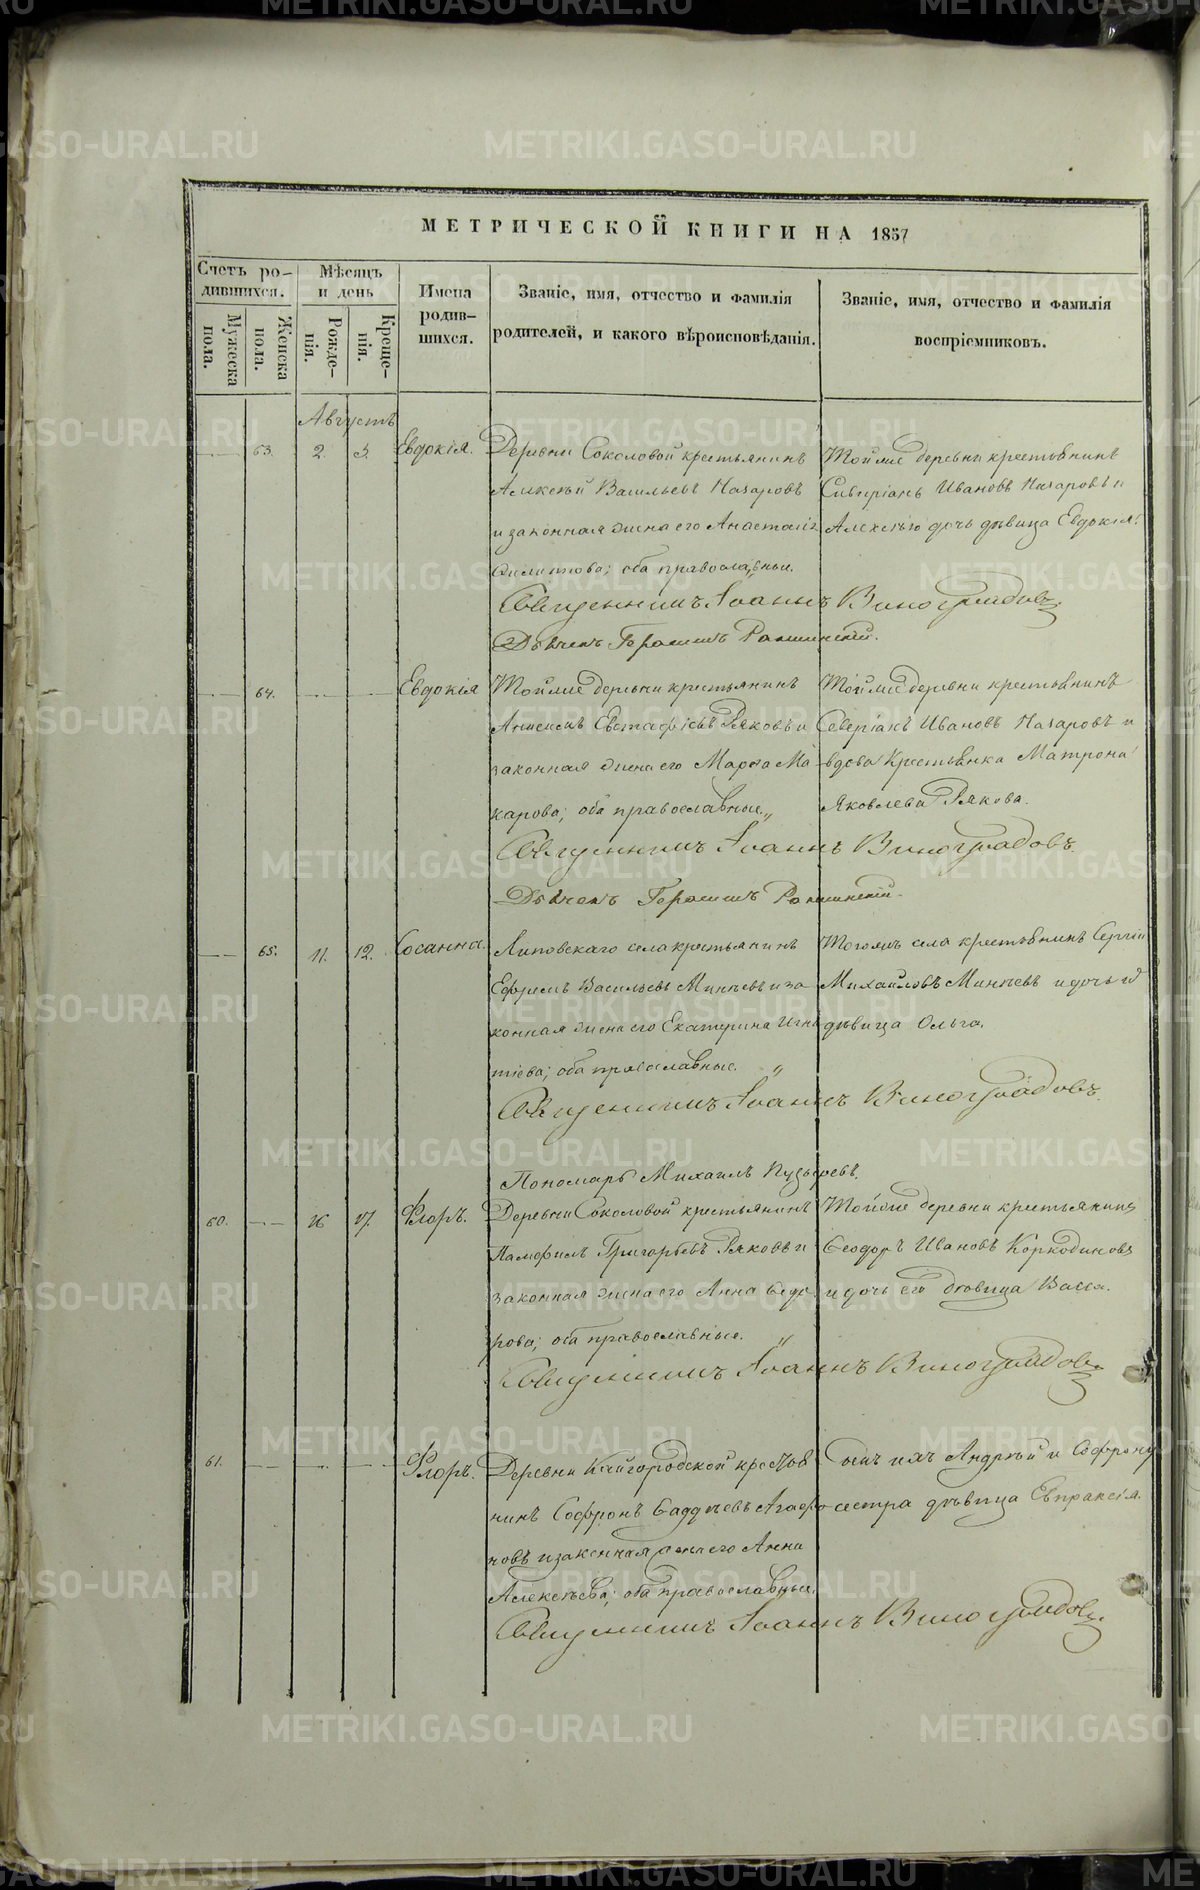 МЕТРИЧЕСКОЙ КНИГИ НА 1857
Счетъ ро-
дившихся.
Мѣсяцъ
и день
Имена
родив-
шихся.
Званіе, имя, отчество и фамилія
родителей, и какого вѣроисповѣданія.
Званіе, имя, отчество и фамилія
воспріемниковъ.
Мужеска
пола.
Женска
пола.
Рожде-
нія.
Креще-
нія.
Августъ
63. 2. 3. Евдокія. Деревни Соколовой крестьянинъ Той же деревни крестьянинъ
Алексѣй Васильевъ Назаровъ Ивановъ Назаровъ и
и законная жена его Анастасія дочь дѣвица Евдокія.
оба православные.
Священникъ Іоаннъ Виноградовъ
Дьячекъ Герасимъ
64. Евдокія Той же деревни крестьянинъ Той же деревни крестьянинъ
Евстафіевъ Ряковъ и Северіанъ Ивановъ Назаровъ и
законная жена его Марѳа Ма- вдова крестьянка Матрона
карова; оба православные. Яковлева Рякова.
Священникъ Іоаннъ Виноградовъ.
Дьячекъ Герасимъ
65. 11. 12. Сосанна. Липовскаго села крестьянинъ Тогожъ села крестьянинъ Сергій
Ефремъ Васильевъ Минѣевъ и за- Михайловъ Минѣевъ и дочь его
конная жена его Екатерина Игна- дѣвица Ольга.
тіева; оба православные.
Священникъ Іоаннъ Виноградовъ.
Пономарь Михаилъ
60. 16 17. Флоръ. Деревни Соколовой крестьянинъ Той же деревни крестьянинъ
Памфилъ Григорьевъ Ряковъ и Ѳеодоръ Ивановъ Коркодиновъ
законная жена его Анна Ѳедо- и дочь его дѣвица Васса.
рова; оба православные.
Священникъ Іоаннъ Виноградовъ
61. Флоръ. Деревни Кайгородской крестья- сынъ ихъ Андрей и Софрону
нинъ Софронъ Ѳаддѣевъ Агафо- сестра дѣвица Евпраксія.
новъ и законная жена его Анна
Алексѣева; оба православные.
Священникъ Іоаннъ Виноградовъ
METRIKI.GASO-URAL.RU